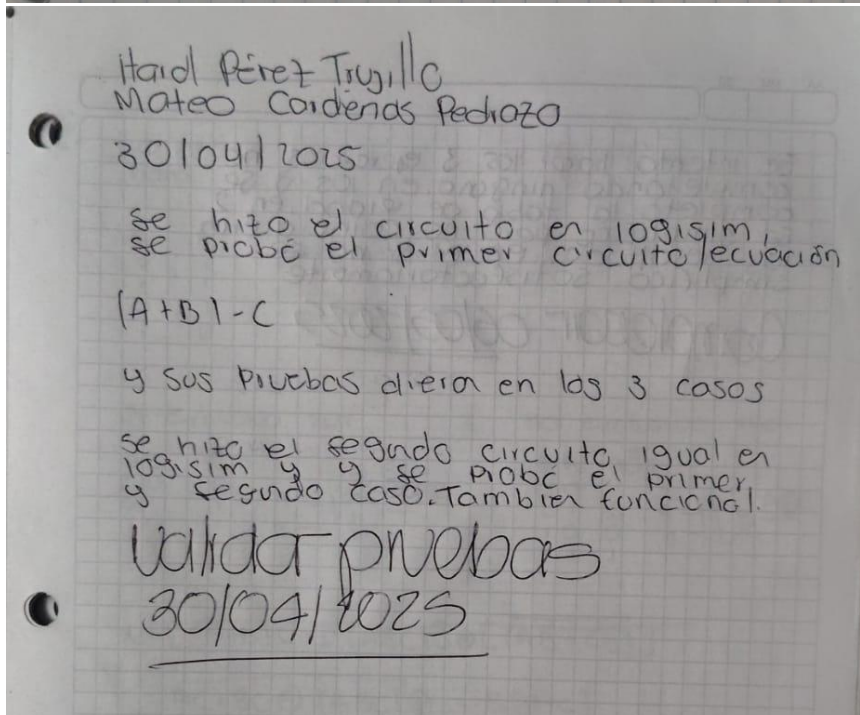 Haid Pérez Trujillo
Mateo Cardenas Pedrozo
30/04/2025
se hizo el circuito en logisim,
se probó el primer circuito/ecuación
(A+B)-C
y sus pruebas dieron en los 3 casos
se hizo el segundo circuito igual en
logisim y y se probó el primer
y segundo caso. También funcional.
Validar pruebas
30/04/2025